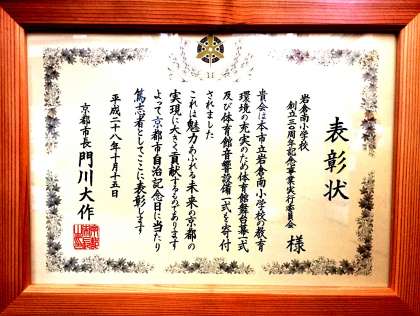 表彰状
岩倉南小学校
創立三〇周年記念事業実行委員会
様
貴会は本市立岩倉南小学校の教育
環境の充実のため体育館舞台幕一式
及び体育館音響設備一式を寄付
されました
これは魅力あふれる未来の京都の
実現に大きく貢献するものであります
よって京都市自治記念日に当たり
篤志者としてここに表彰します
平成二十八年十月十五日
京都市長 門川大作